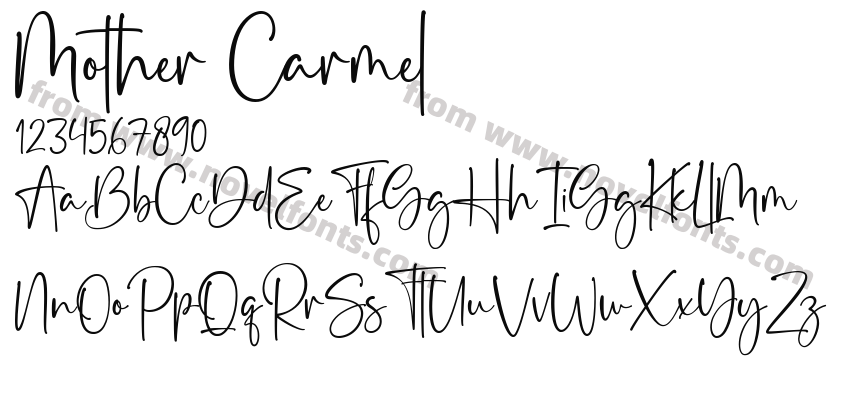 Mother Carmel
1234567890
AaBbCcDdEeFfGgHhIiGgKkLlMm
NnOoPpQqRrSsTtUuVvWwXxYyZz
from www.novelfonts.com
from www.novelfonts.com